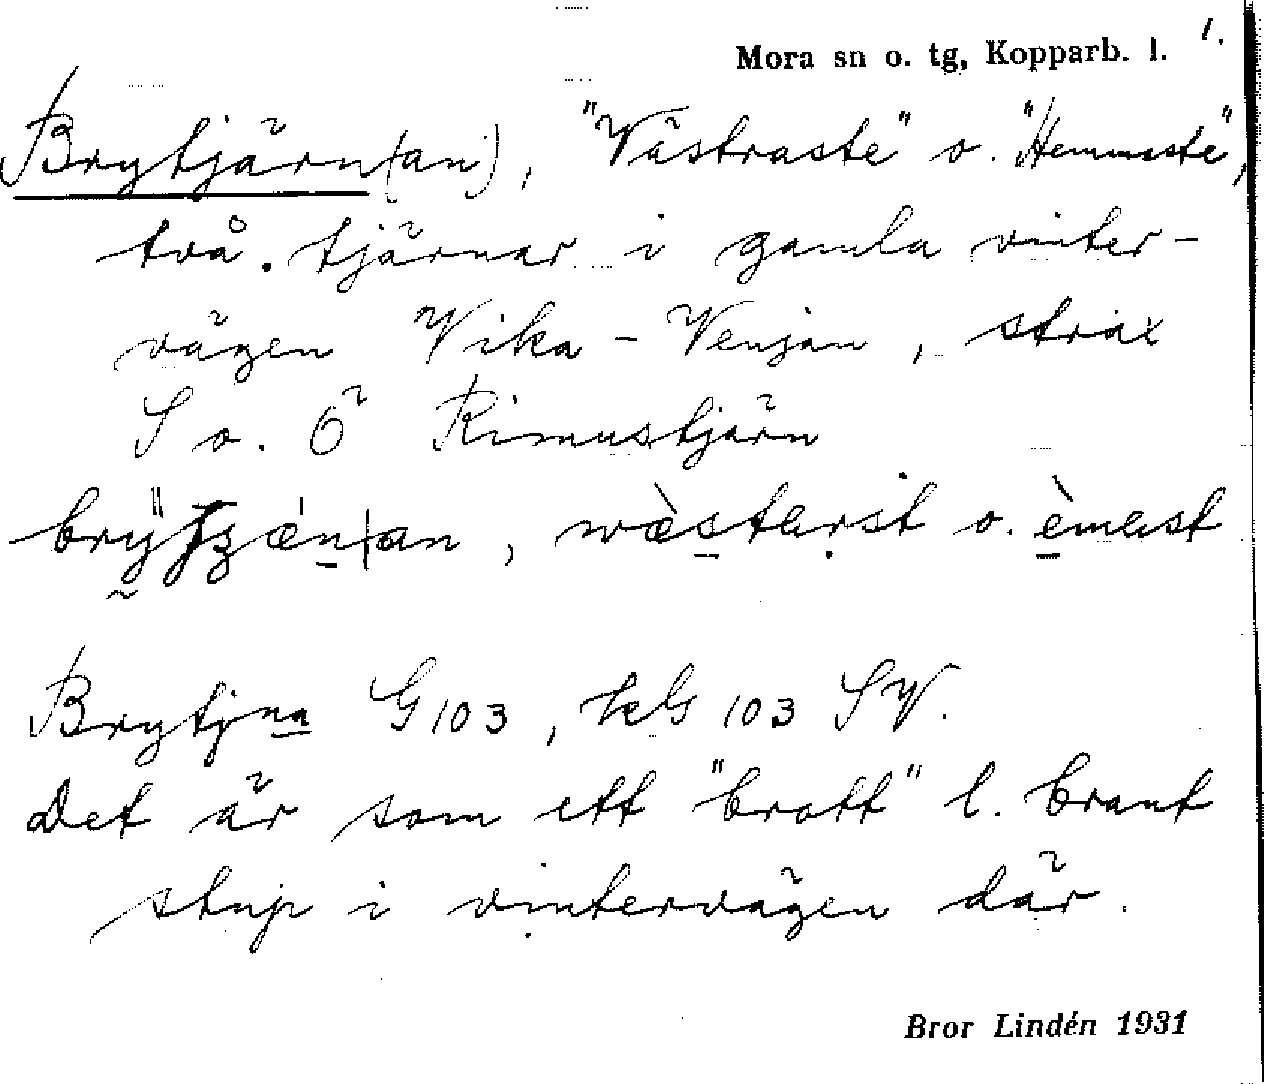 Mora sn o. tg, Kopparb. l. 1.
Brytjärn(an), "Västraste" o. "Hemmaste",
två tjärnar i gamla vinter-
vägen Vika - Venjan, strax
S o. Ö Rimustjärn
wæ̀starst o. èmast
Brytjna G 103, kG 103 SV.
Det är som ett "brott" l. brant
stup i vintervägen där.
Bror Lindén 1931